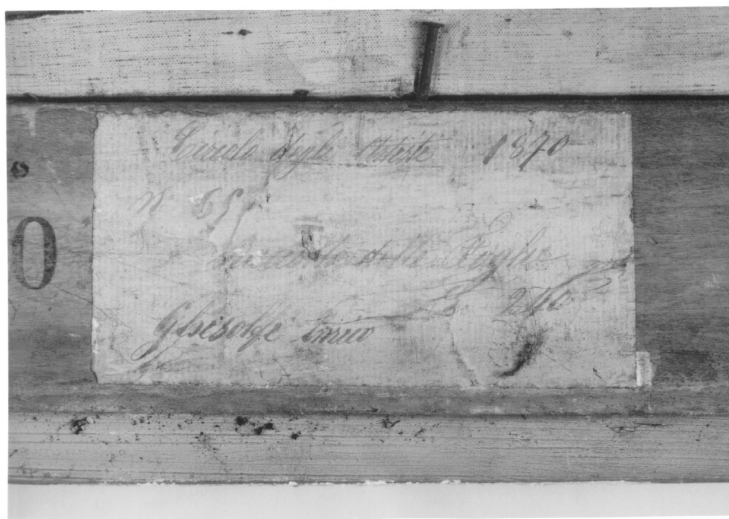 Circolo degli Artisti 1870
0
N 65
delle Foglie
240
Ghisolfi Enrico